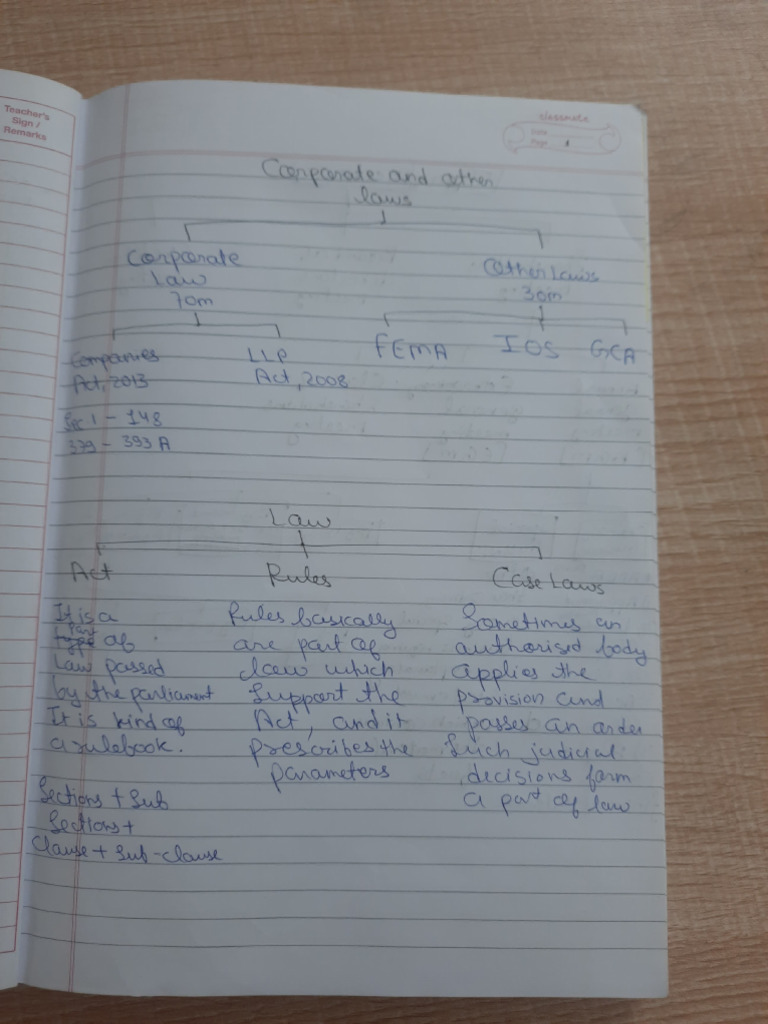 Teacher's
Sign /
Remarks
classmate
Date
Page
Corporate and other
laws
Corporate
Law
70m
Other Laws
30m
Companies
Act, 2013
LLP
Act, 2008
FEMA
IOS
GCA
Sec 1 - 148
379 - 393 A
Law
Act
It is a
part
type of
Law passed
by the parliament
It is kind of
a rulebook.
Sections + Sub
Sections +
Clause + Sub-clause
Rules
Rules basically
are part of
law which
support the
Act, and it
prescribes the
parameters
Case Laws
Sometimes an
authorised body
applies the
provision and
passes an order
Such judicial
decisions form
a part of law